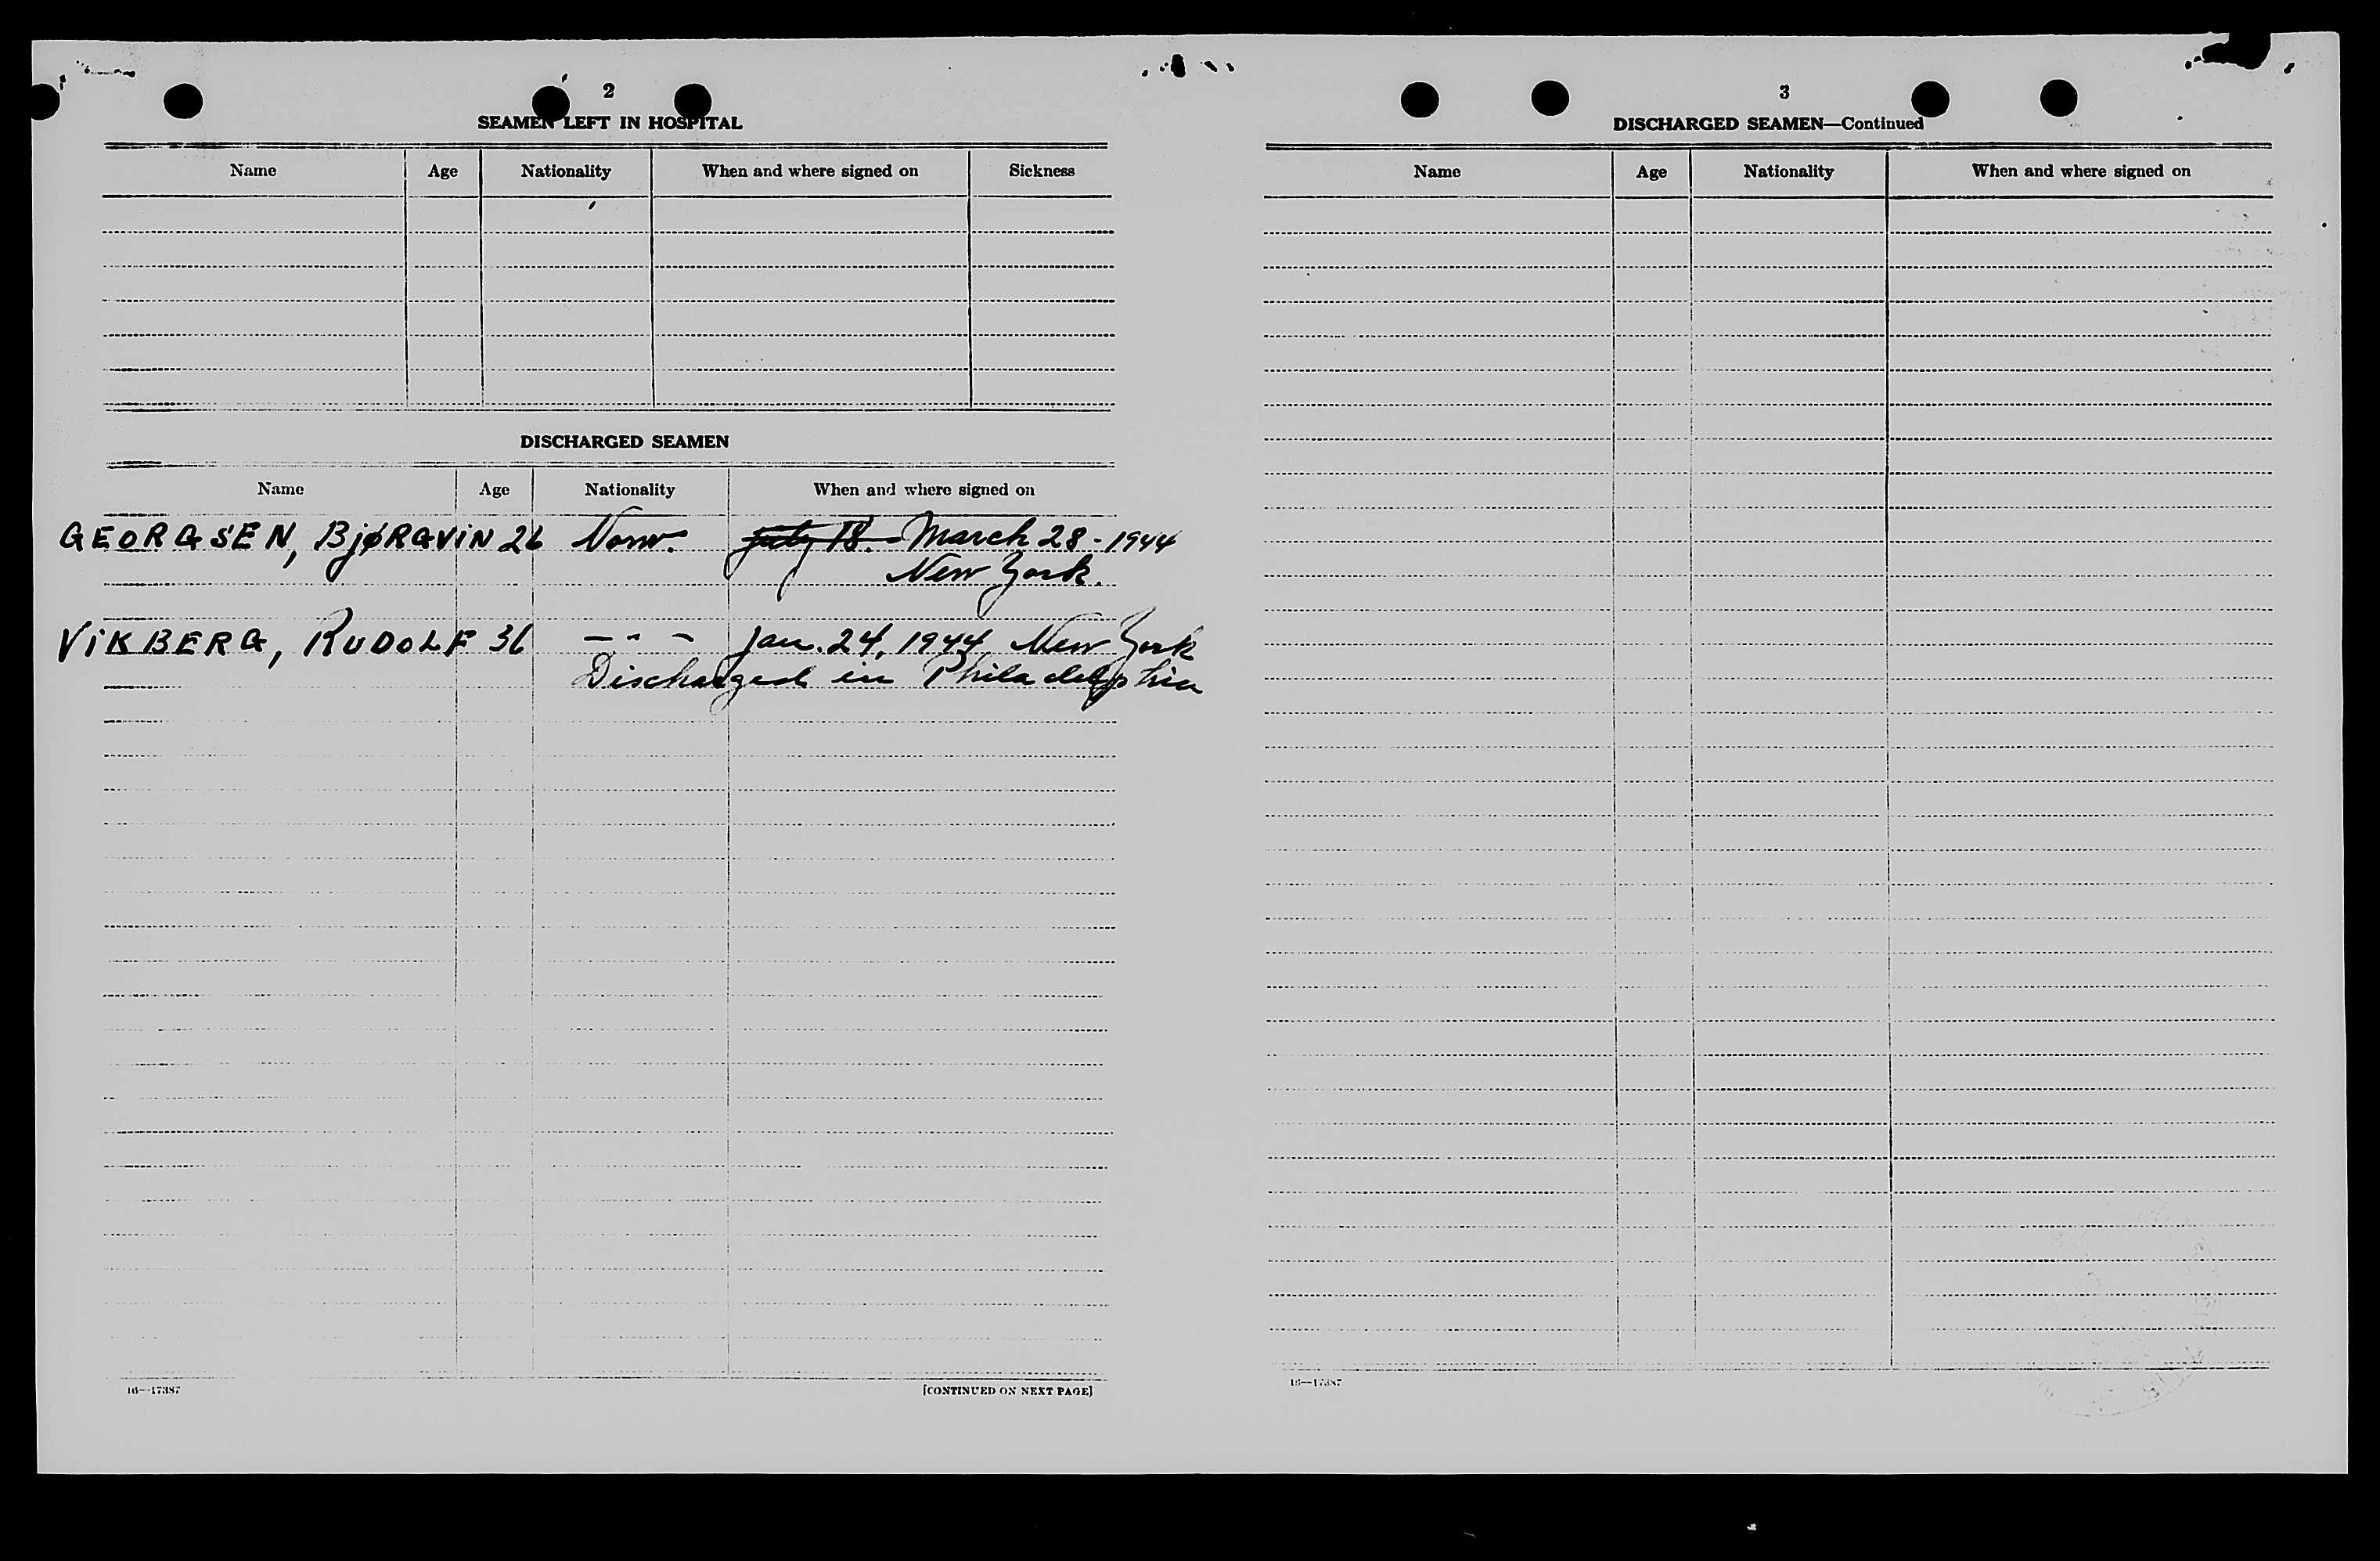 2
SEAMEN LEFT IN HOSPITAL
Name Age Nationality When and where signed on Sickness
DISCHARGED SEAMEN
Name Age Nationality When and where signed on
GEORGSEN, BjØRGViN 26 Norw. July 18. March 28 - 1944
New York.
ViKBERG, RUDOLF 36 — " — Jan. 24, 1944 New York
Discharged in Philadelphia
16—17387 [CONTINUED ON NEXT PAGE]
3
DISCHARGED SEAMEN—Continued
Name Age Nationality When and where signed on
16—17387